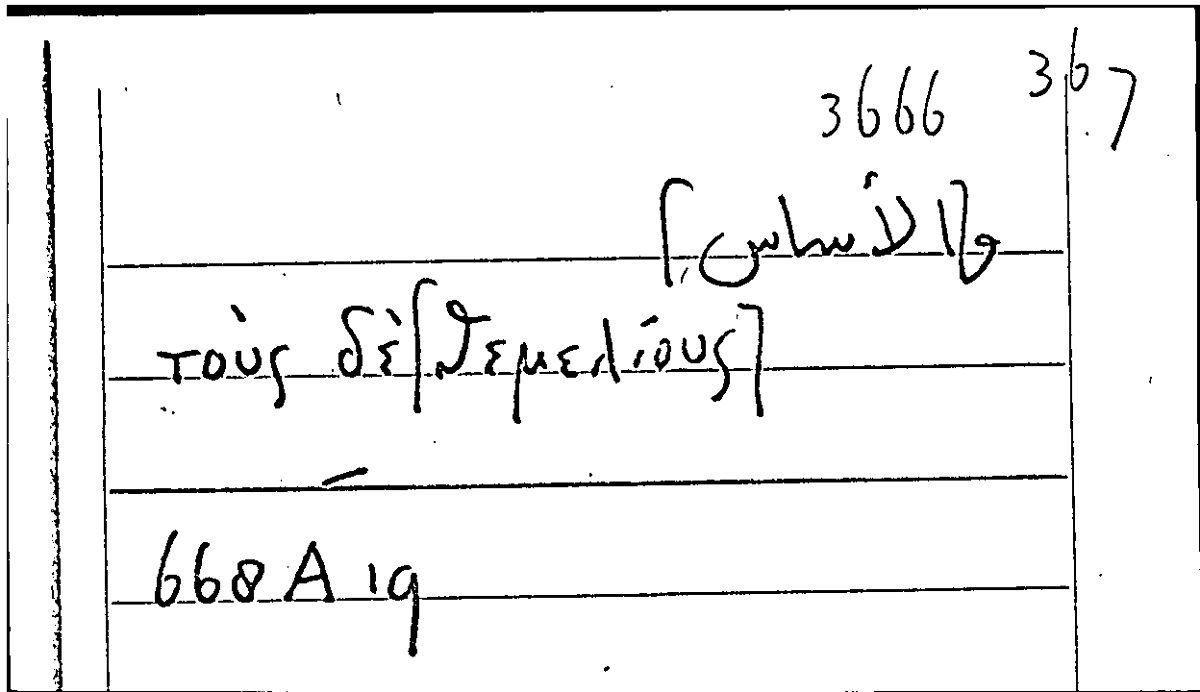 367
3666
و[الأساس]
τοὺς δὲ [θεμελίους]
–
668 A 19